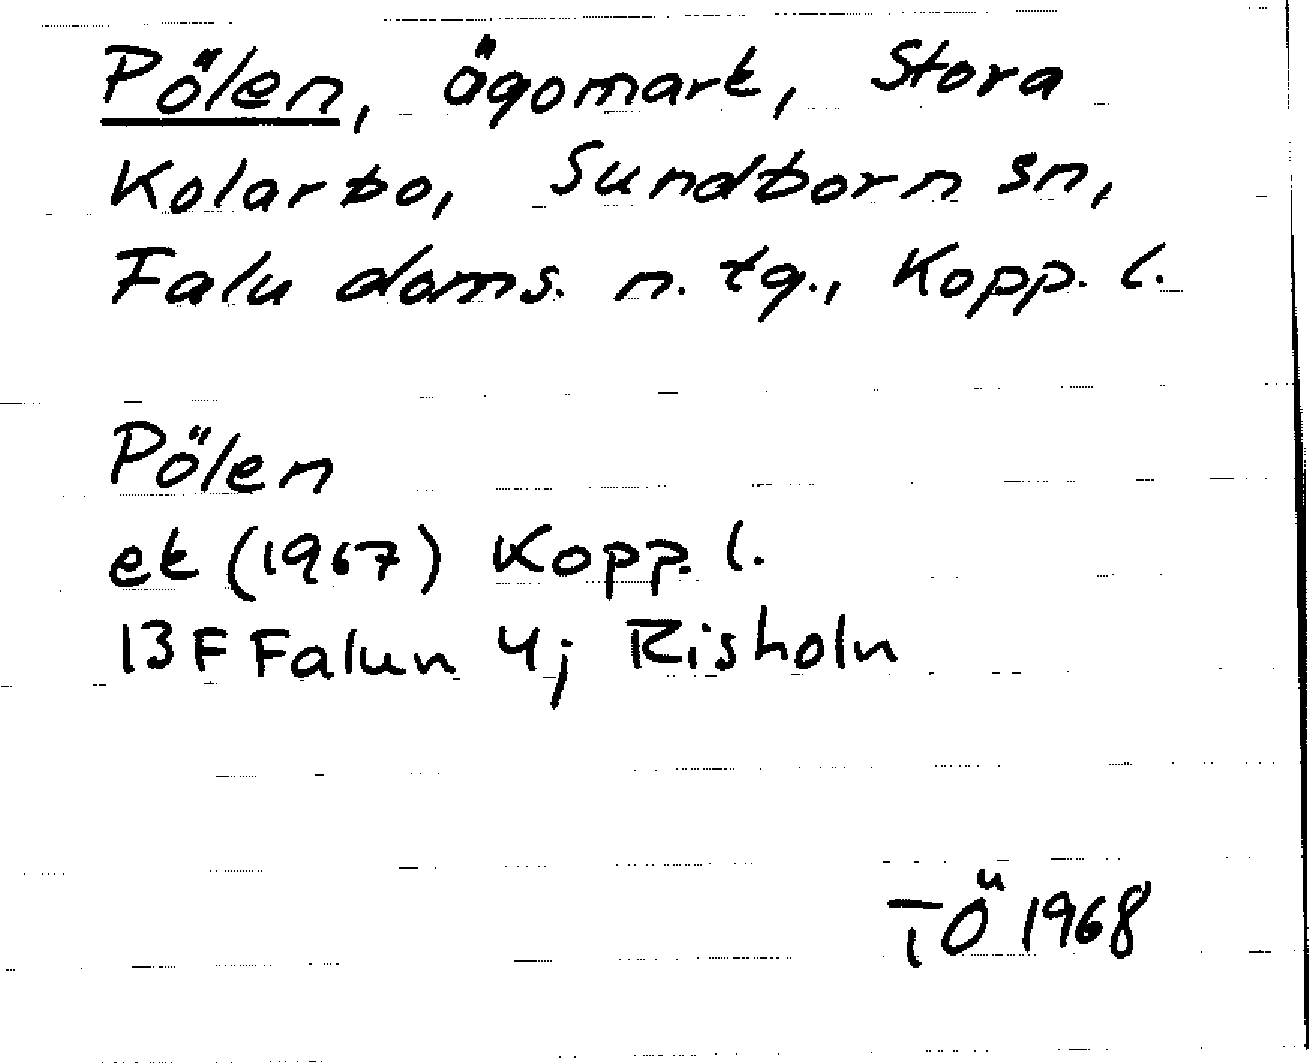 Pölen, ägomark, Stora
Kolarbo, Sundborn sn,
Falu doms. n. tg., Kopp. l.
Pölen
ek (1967) Kopp. l.
13F Falun 4j Risholn
TÖ 1968